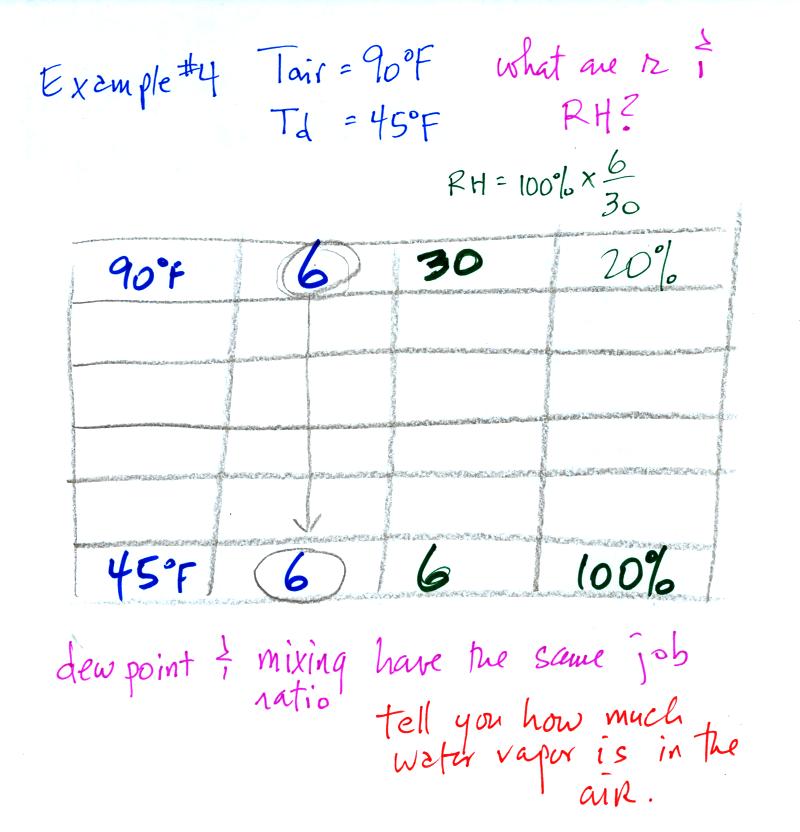 Example #4 Tair = 90°F what are r &
Td = 45°F RH?
RH = 100% × 6/30
90°F 6 30 20%
45°F 6 6 100%
dew point & mixing have the same job
ratio
tell you how much
water vapor is in the
air.